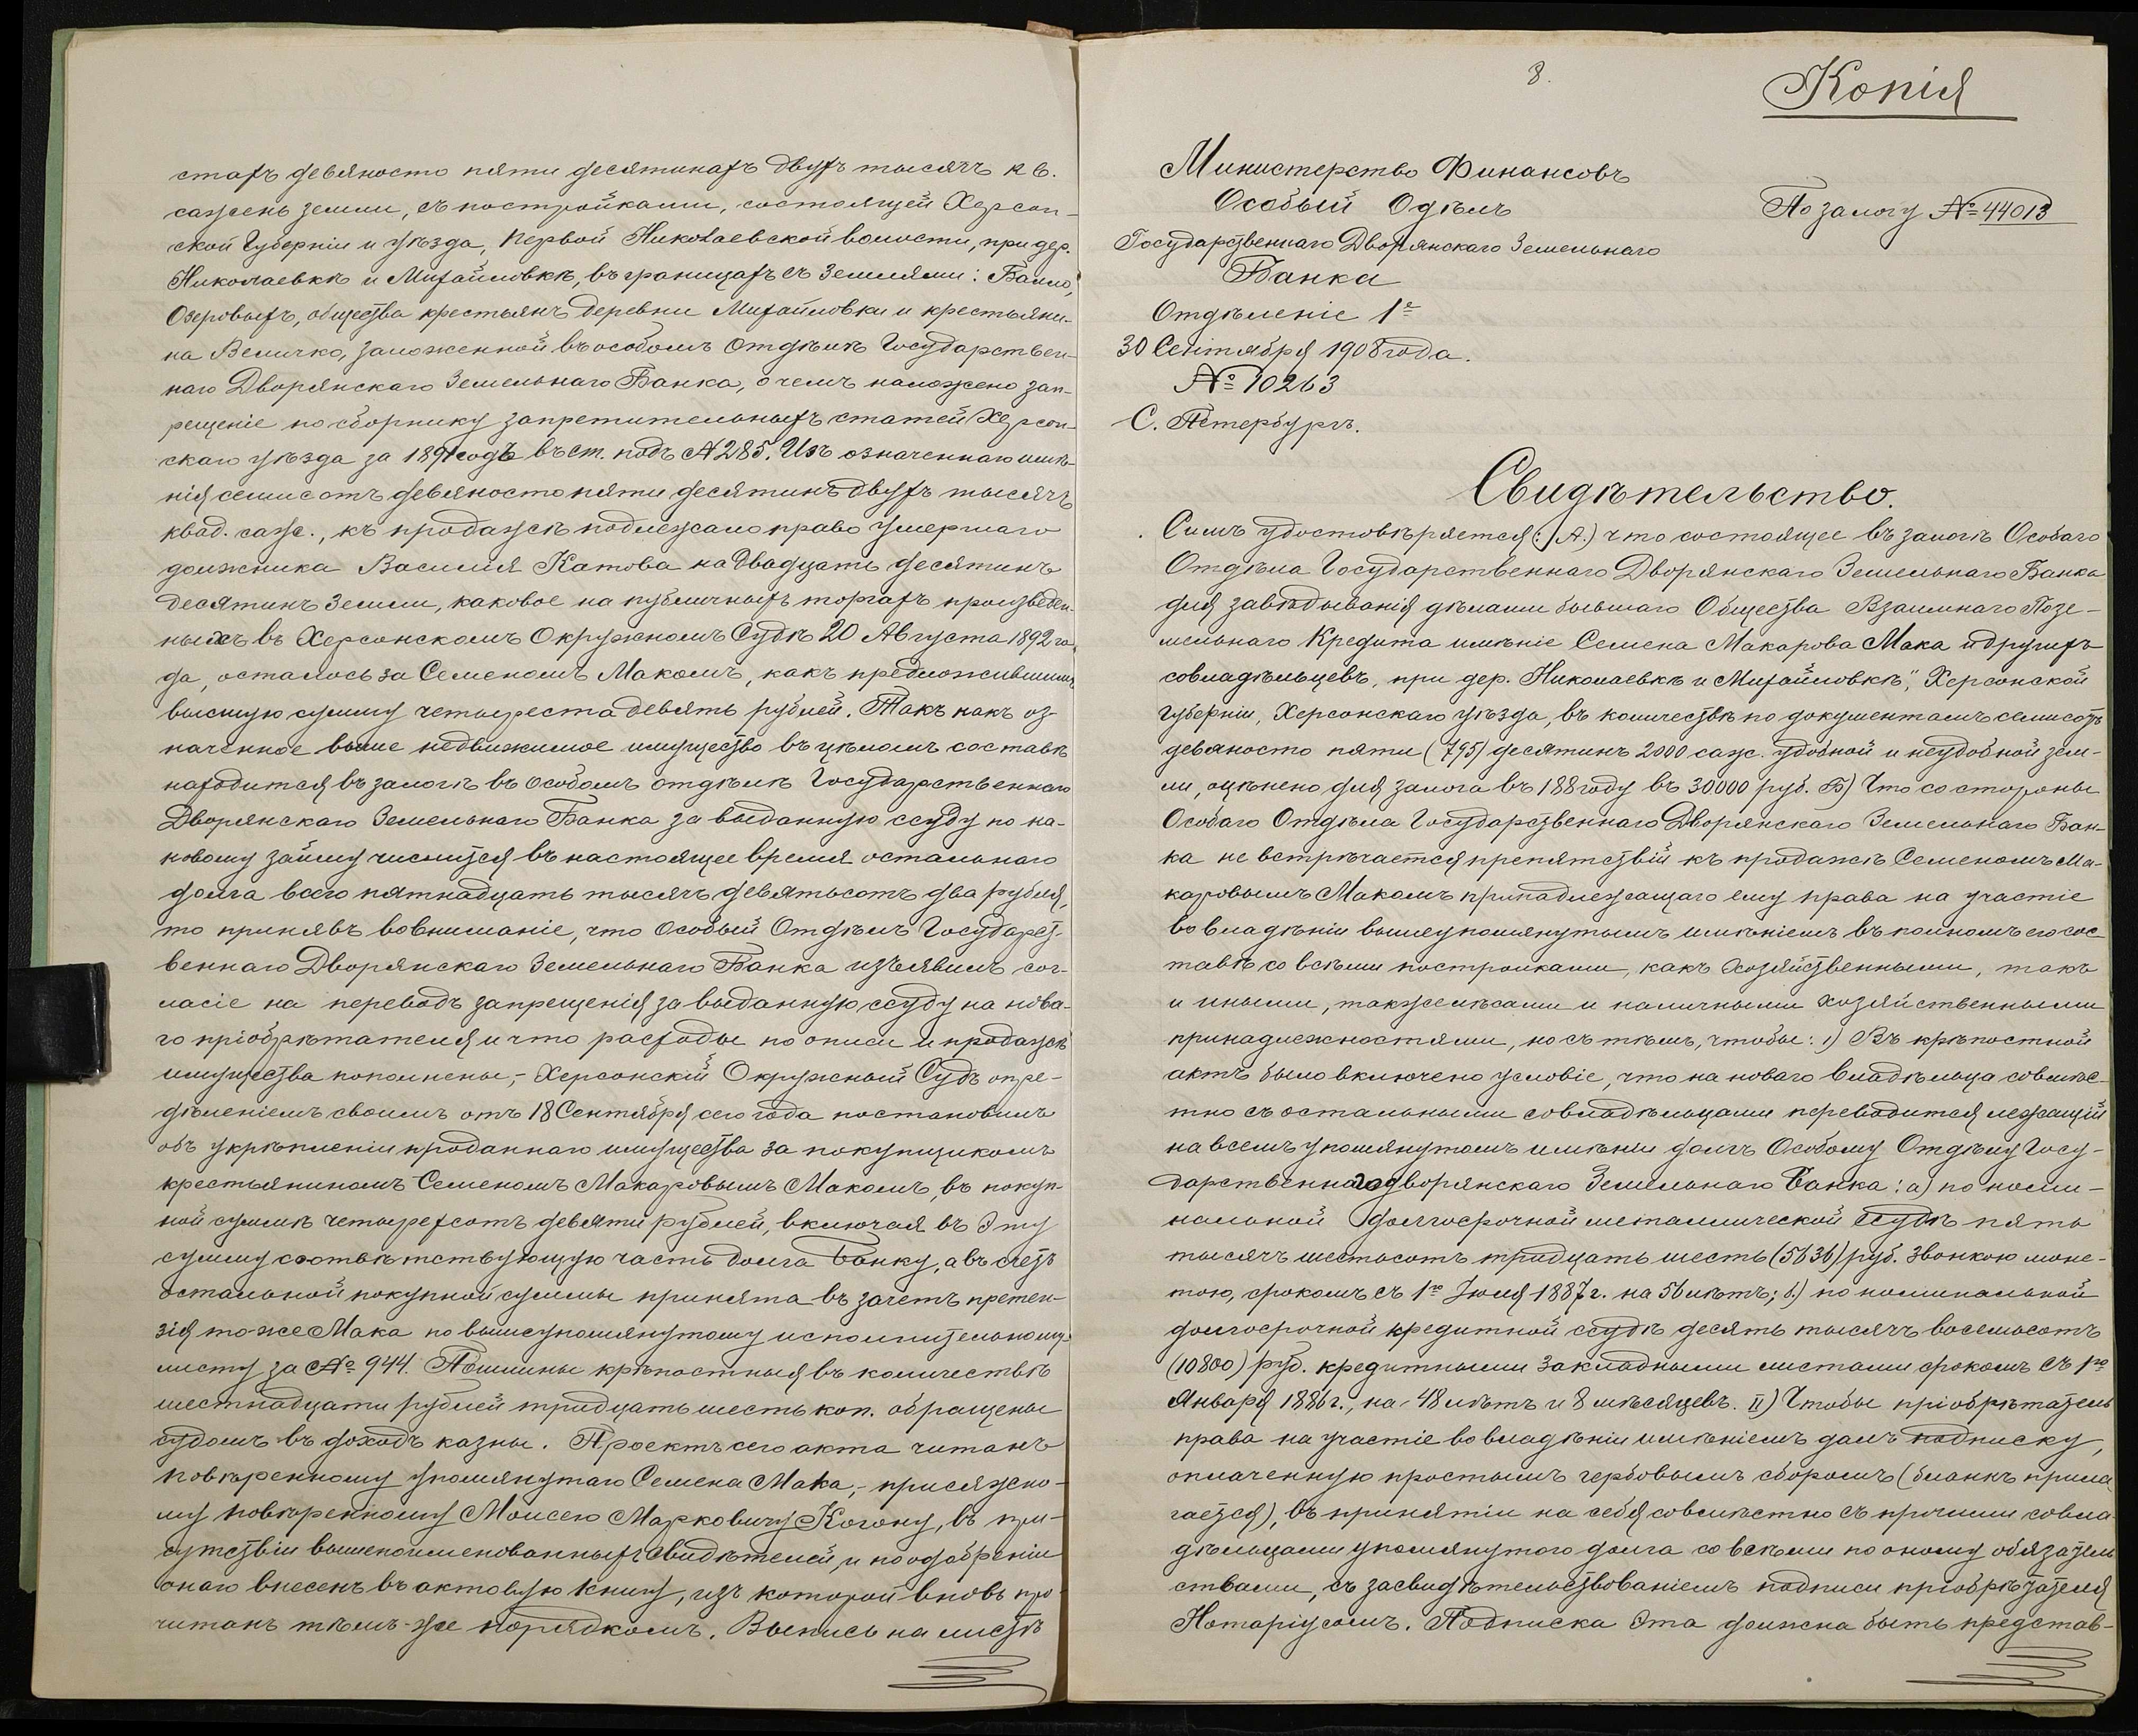 стахъ девяносто пяти десятинахъ двухъ тысячъ кв.
сажень земли, съ постройками, состоящей Херсон-
ской Губерніи и уѣзда, Первой Николаевской волости, при дер.
Николаевкѣ и Михайловкѣ, въ границахъ съ землями: Бално,
Озеровыхъ, общества крестьянъ деревни Михайловки и крестьяни-
на Величко, заложенной въ особомъ отдѣлѣ Государствен-
наго Дворянскаго Земельнаго Банка, о чемъ наложено зап-
рещеніе по сборнику запретительныхъ статей Херсон-
скаго уѣзда за 1891 годъ въ ст. подъ № 285. Изъ означеннаго имѣ-
нія семисотъ девяносто пяти десятинъ двухъ тысячъ
квад. саж., къ продажѣ подлежало право умершаго
должника Василія Катова на двадцать десятинъ
десятинъ земли, каковое на публичныхъ торгахъ произведен-
ныхъ въ Херсонскомъ Окружномъ Судѣ 20 Августа 1892 го-
да, осталось за Семеномъ Макомъ, какъ предложившимъ
высшую сумму четыреста девять рублей. Такъ какъ оз-
наченное выше недвижимое имущество въ цѣломъ составѣ
находится въ залогѣ въ особомъ отдѣлѣ Государственнаго
Дворянскаго Земельнаго Банка за выданную ссуду по ка-
ковому займу числится въ настоящее время остальнаго
долга всего пятнадцать тысячъ девятьсотъ два рубля,
то принявъ во вниманіе, что Особый Отдѣлъ Государст-
веннаго Дворянскаго Земельнаго Банка изъявилъ сог-
ласіе на переводъ запрещенія за выданную ссуду на нова-
го пріобрѣтателя и что расходы по описи и продажѣ
имущества пополнены,- Херсонскій Окружный Судъ опре-
дѣленіемъ своимъ отъ 18 Сентября сего года постановилъ
объ укрѣпленіи проданнаго имущества за покупщикомъ
крестьяниномъ Семеномъ Макаровымъ Макомъ, въ покуп-
ной суммѣ четырехсотъ девяти рублей, включая въ эту
сумму соотвѣтствующую часть долга Банку, а въ счетъ
остальной покупной суммы принята въ зачетъ претен-
зія то-же Мака по вышеупомянутому исполнительному
листу за № 944. Пошлины крѣпостныя въ количествѣ
шестнадцати рублей тридцать шесть коп. обращены
судомъ въ доходъ казны. Проектъ сего акта читанъ
повѣренному упомянутаго Семена Мака,- присяжно-
му повѣренному Моисею Марковичу Когону, въ при-
сутствіи вышепоименованныхъ свидѣтелей, и по одобреніи
онаго внесенъ въ актовую книгу, изъ которой вновь про-
читанъ тѣмъ-же порядкомъ. Выпись на листѣ
8.
Копія
Министерство Финансовъ
Особый Одѣлъ
По залогу № 44013
Государственнаго Дворянскаго Земельнаго
Банка
Отдѣленіе 1е
30 Сентября 1908 года.
№ 10263
С. Петербургъ.
Свидѣтельство.
Симъ удостовѣряется: А.) что состоящее въ залогѣ Особаго
Отдѣла Государственнаго Дворянскаго Земельнаго Банка
для завѣдыванія дѣлами бывшаго Общества Взаимнаго Позе-
мельнаго Кредита имѣніе Семена Макарова Мака и другихъ
совладѣльцевъ, при дер. Николаевкѣ и Михайловкѣ," Херсонской
Губерніи, Херсонскаго уѣзда, въ количествѣ по документамъ семисотъ
девяносто пяти (795) десятинъ 2000 саж. удобной и неудобной зем-
ли, оцѣнено для залога въ 188 году въ 30000 руб. Б) Что со стороны
Особаго Отдѣла Государственнаго Дворянскаго Земельнаго Бан-
ка не встрѣчается препятствій къ продажѣ Семеномъ Ма-
каровымъ Макомъ принадлежащаго ему права на участіе
во владѣніи вышеупомянутымъ имѣніемъ въ полномъ его сос
тавѣ со всѣми постройками, какъ хозяйственными, такъ
и иными, также лѣсами и наличными хозяйственными
принадлежностями, но съ тѣмъ, чтобы: 1) Въ крѣпостной
актъ было включено условіе, что на новаго владѣльца совмѣс-
тно съ остальными совладѣльцами переводится лежащій
на всемъ упомянутомъ имѣніи долгъ Особому Отдѣлу Госу-
дарственнаго дворянскаго Земельнаго Банка: а) по номи-
нальной долгосрочной металлической ссудѣ пять
тысячъ шестьсотъ тридцать шесть (5636) руб. звонкою моне-
тою, срокомъ съ 1го Іюля 1887 г. на 56 лѣтъ; б.) по номинальной
долгосрочной кредитной ссудѣ десять тысячъ восемьсотъ
(10800) руб. кредитными закладными листами срокомъ съ 1го
Января 1886 г., на 48 лѣтъ и 8 мѣсяцевъ. II) Чтобы пріобрѣтатель
права на участіе во владѣніи имѣніемъ далъ подписку,
оплаченную простымъ гербовымъ сборомъ (бланкъ прила-
гается), въ принятіи на себя совмѣстно съ прочими совла-
дѣльцами упомянутого долга со всѣми по оному обязатель
ствами, съ засвидѣтельствованіемъ подписи пріобрѣтателя
Нотаріусомъ. Подписка эта должна быть представ-